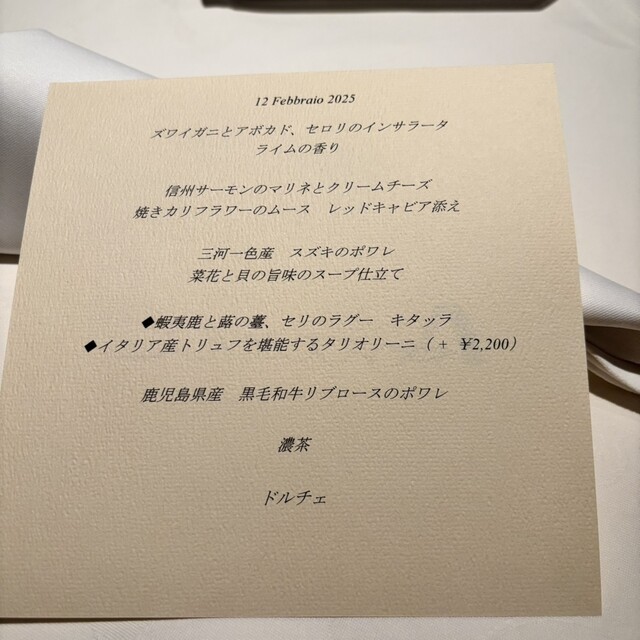 12 Febbraio 2025
ズワイガニとアボカド、セロリのインサラータ
ライムの香り
信州サーモンのマリネとクリームチーズ
焼きカリフラワーのムース　レッドキャビア添え
三河一色産　スズキのポワレ
菜花と貝の旨味のスープ仕立て
◆蝦夷鹿と蕗の薹、セリのラグー　キタッラ
◆イタリア産トリュフを堪能するタリオリーニ（ + ¥2,200）
鹿児島県産　黒毛和牛リブロースのポワレ
濃茶
ドルチェ